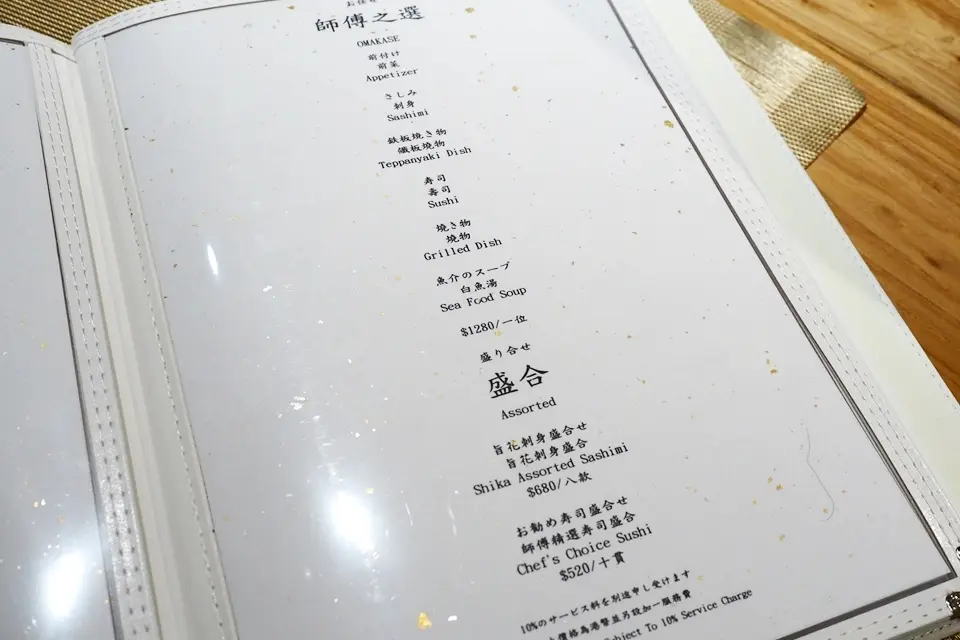 お任せ
師傅之選
OMAKASE
前付け
前菜
Appetizer
さしみ
刺身
Sashimi
鉄板焼き物
鐵板燒物
Teppanyaki Dish
寿司
壽司
Sushi
燒き物
燒物
Grilled Dish
魚介のスープ
白魚湯
Sea Food Soup
$1280/一位
盛り合せ
盛合
Assorted
旨花刺身盛合せ
旨花刺身盛合
Shika Assorted Sashimi
$680/八款
お勧め寿司盛合せ
師傅精選寿司盛合
Chef's Choice Sushi
$520/十貫
10%のサービス料を別途申し受けます
價格為港幣並另設加一服務費
Subject To 10% Service Charge